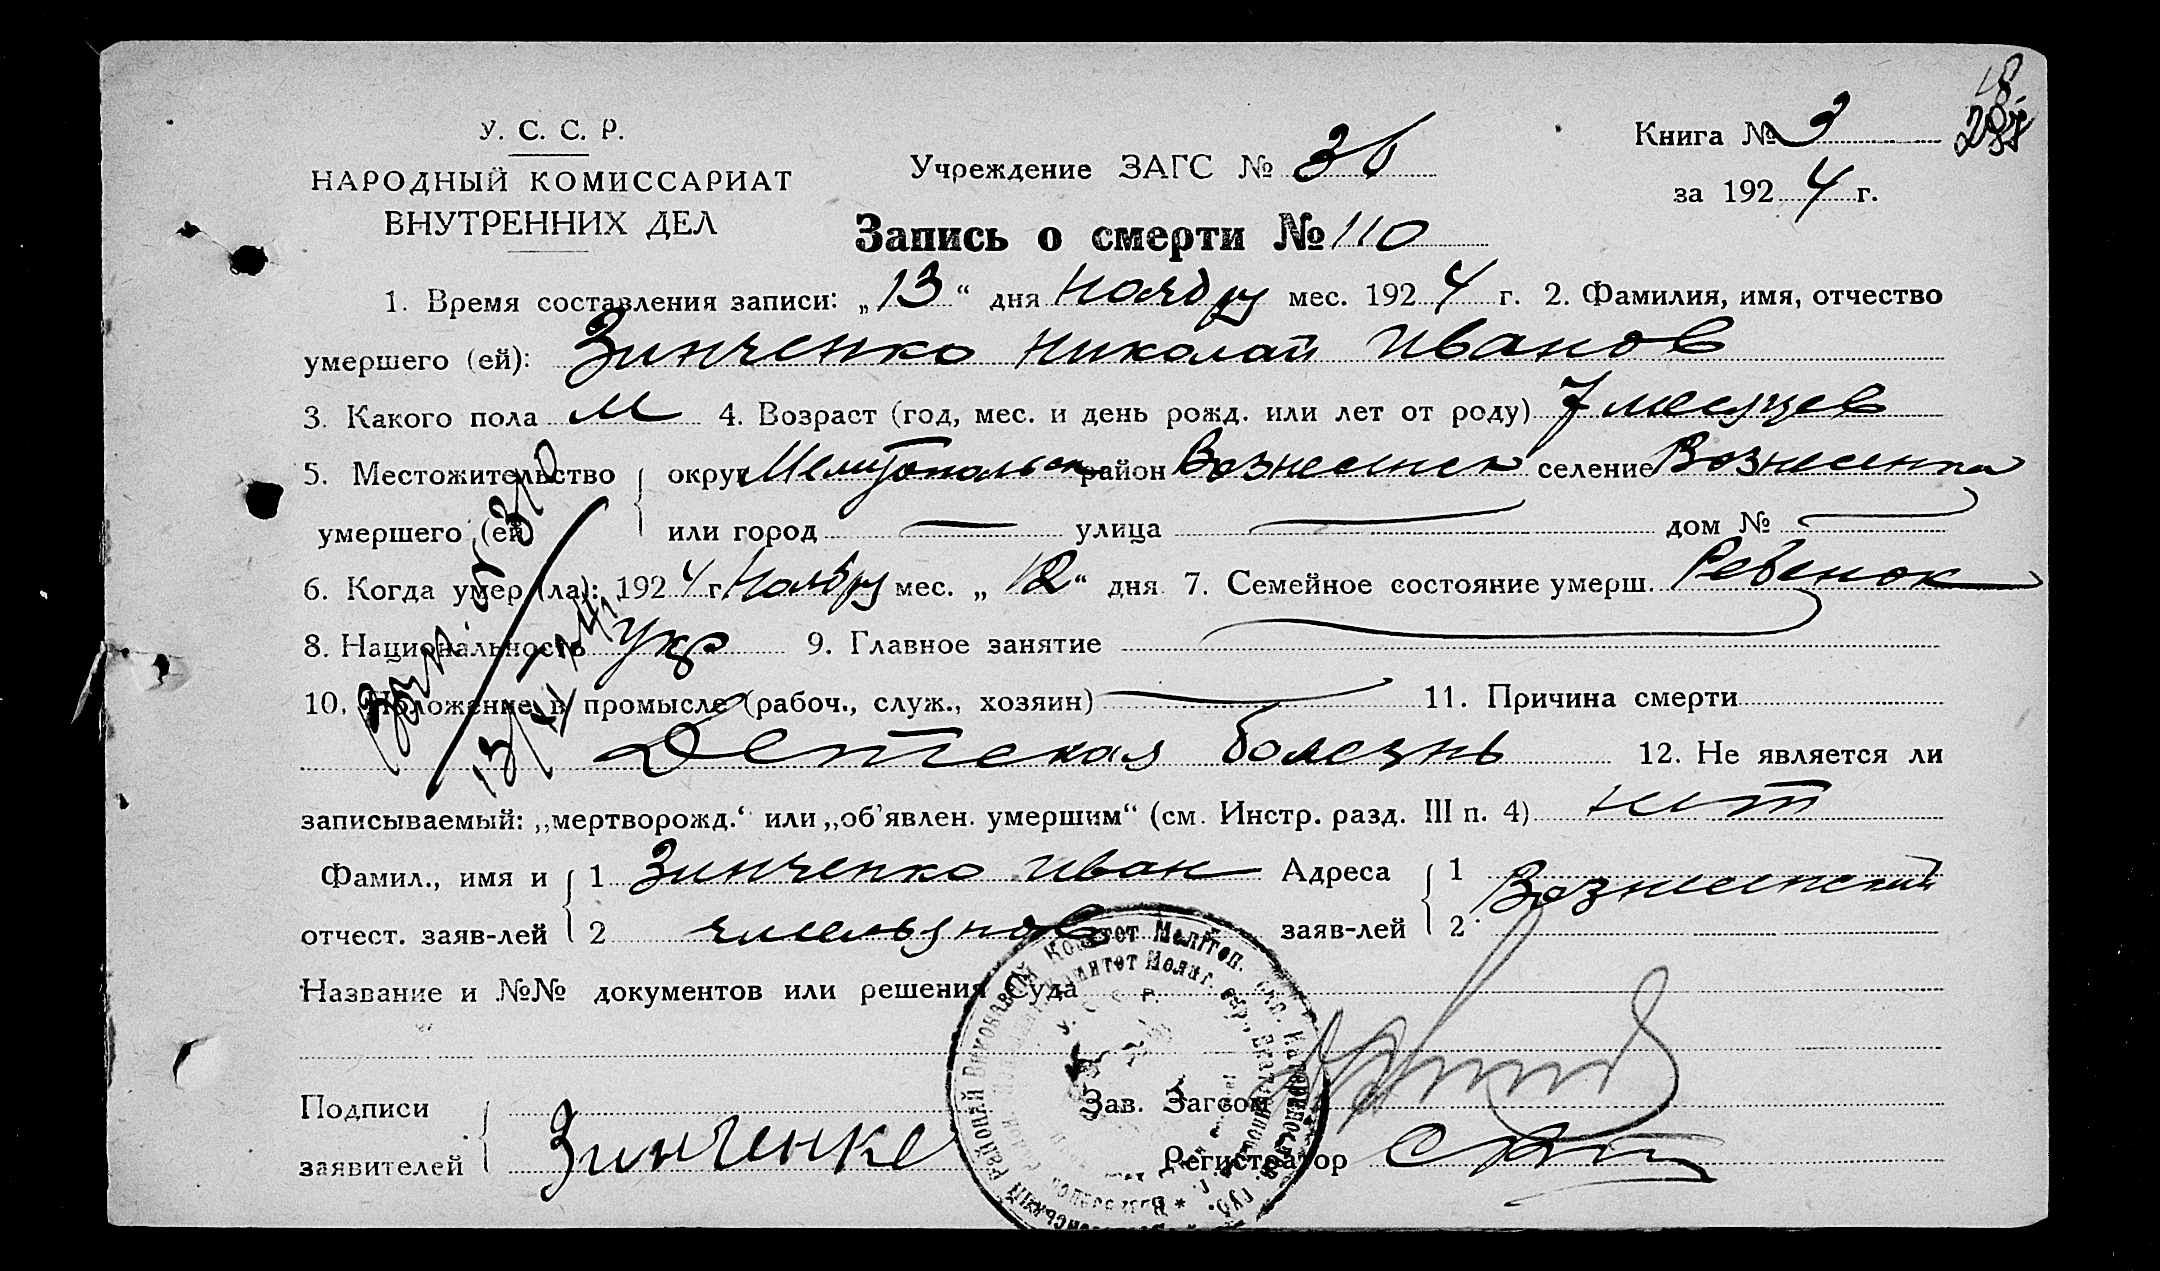 У. С. С. Р.
НАРОДНЫЙ КОМИССАРИАТ
ВНУТРЕННИХ ДЕЛ
Учреждение ЗАГС №
Книга № 3
за 1924 г.
Запись о смерти № 110
1. Время составления записи: „13“ дня Ноября мес. 1924 г. 2. Фамилия, имя, отчество
умершего (ей): Зинченко Николай Иванов
3. Какого пола М 4. Возраст (год, мес. и день рожд. или лет от роду) 7 месяцев
5. Местожительство округ Мелитопольск район Вознесенск селение Вознесенка
умершего (ей) или город — улица — дом № —
6. Когда умер (ла): 1924 г. Ноября мес. „12“ дня 7. Семейное состояние умерш. Ребенок
8. Национальность Укр 9. Главное занятие —
10. Положение в промысле (рабоч., служ., хозяин) — 11. Причина смерти
Детская болезнь 12. Не является ли
записываемый: „мертворожд.“ или „об'явлен. умершим“ (см. Инстр. разд. III п. 4) нет
Фамил., имя и 1 Зинченко Иван Адреса 1 Вознесенский
отчест. заяв-лей 2 заяв-лей 2
Название и №№ документов или решения Суда
Подписи Зав. Загсом
заявителей Зинченко Регистратор